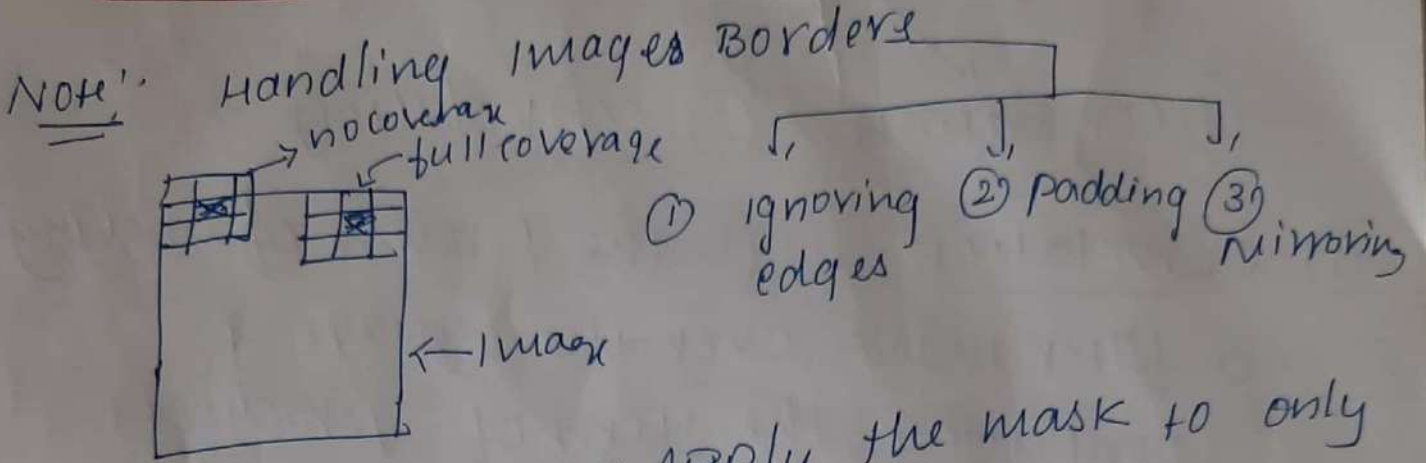 Note: Handling Images Borders
no coverax
full coverage
① ignoring edges
② padding
③ Mirroring
← Image
Apply the mask to only